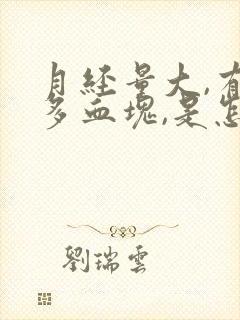 月经量大,有
多血塊,是怎
劉瑞雲